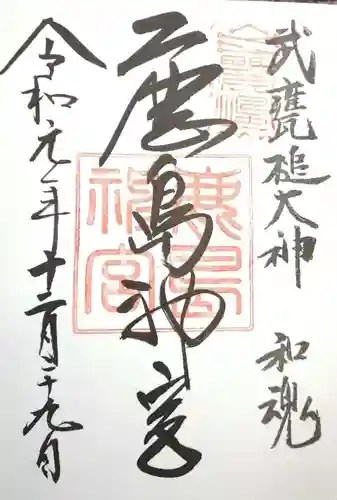 武甕槌大神　和魂
鹿島神宮
令和元年十二月二十九日
鹿島
神宮